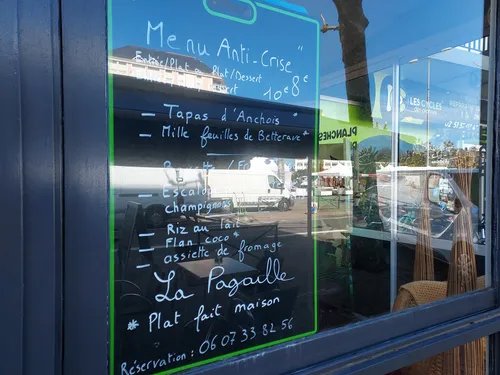 Menu Anti-Crise"
Entrée/Plat Plat/Dessert
10€ 8€
- Tapas d'Anchois *
- Mille feuilles de Betterave *
- Escal
champignons
- Riz au lait
- Flan coco *
- assiette de fromage
La Pagaille
* Plat fait maison
Réservation : 06 07 33 82 56
PLANCHES
LES CYCLES